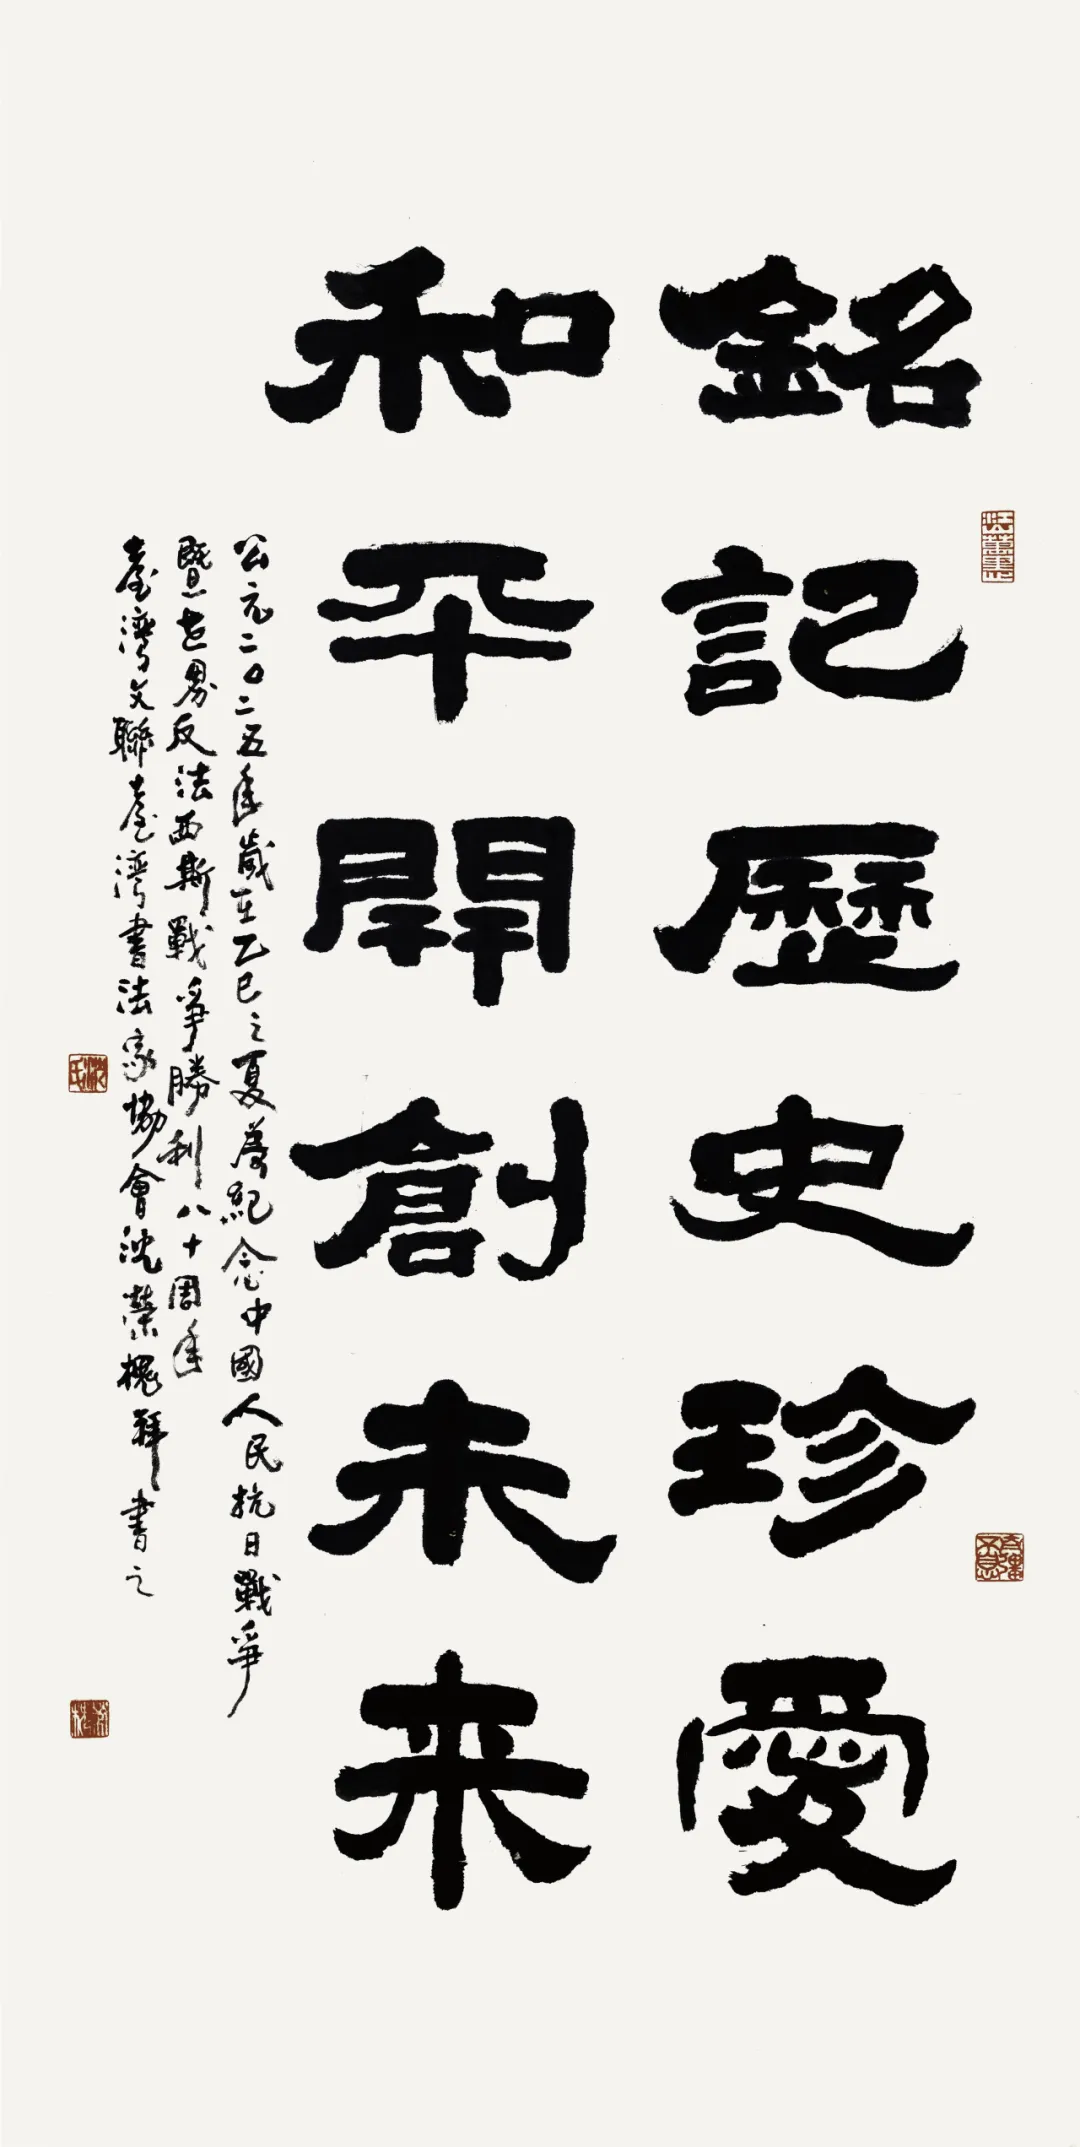 銘記歷史珍愛
和平開創未来
公元二〇二五年歲在乙巳之夏為紀念中國人民抗日戰爭
暨世界反法西斯戰爭勝利八十周年
臺灣文聯臺灣書法家協會沈榮槐拜書之
沈氏